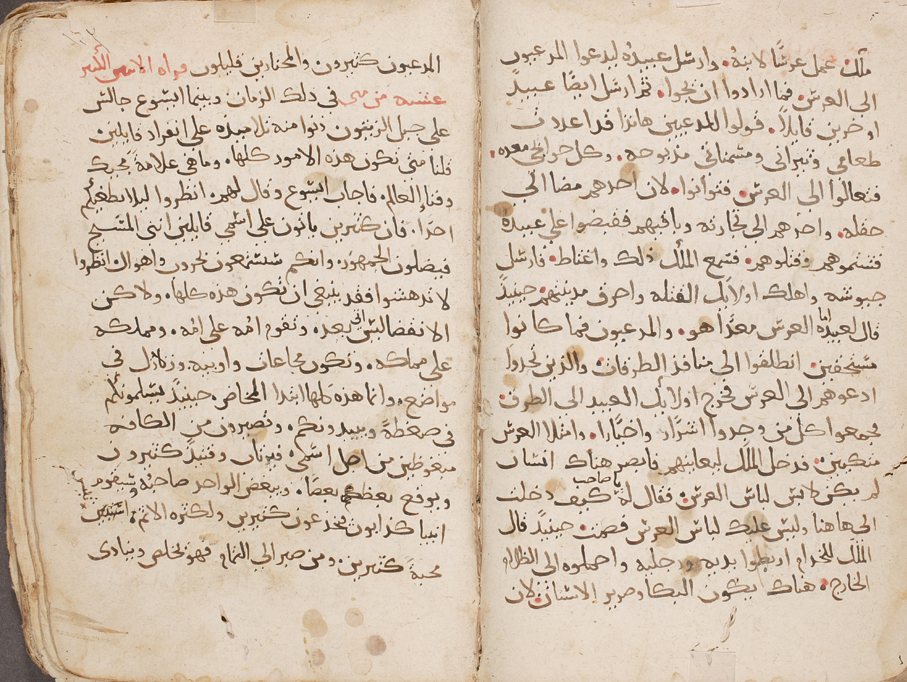 ملك عمل عرسًا لابنه. وارسل عبيده ليدعوا المدعوين
الى العرس فما ارادوا ان يجوا. ثم ارسل ايضًا عبيدً
اوخرين قايلاً. قولوا للمدعيين هاندا قد اعددت
طعامي وثيراني ومسمناتي مذبوحه. وكل حوايجي معده.
فتعالوا الى العرس. فتوانوا. لان احدهم مضا الى
حقله. واحدهم الى تجارته وباقيهم فقبضوا على عبيده
فشتموهم وقتلوهم. فسمع الملك ذلك واغتاظ. فارسل
جيوشه واهلك اولايك القتله واحرق مدينتهم. حينيدً
قال لعبيده اما العرس معدًا هو. والمدعوون فما كانوا
مستحقين. انطلقوا الى منافذ الطرقات. والذين تجدوا
ادعوهم الى العرس. فخرج اولايك العبيد الى الطرق.
فجمعوا كل من وجدوا اشرارً واخيارًا. وامتلا العرس
متكيين. فدخل الملك ليعاينهم فابصر هناك انسان
لم يكن لابس لباس العرس. فقال له يا صاحب كيف دخلت
الى هاهنا وليس عليك لباس العرس فصمت. حينيدً قال
الملك للخدام اربطوا يديه ورجليه واحملوه الى الظلام
الخارج. هناك يكون البكا وصرير الاسنان. لان
المدعوون كثيرون والمختارين قليلون قراه الاثنين الكبير
عشيه من متى في ذلك الزمان. وبينما ايسوع جالس
على جبل الزيتون دنوا منه تلاميذه على انفراد قايلين
قلنا متى تكون هذه الامور كلها. وما هي علامة مجيك
وفنا العالم. فاجاب ايسوع وقال لهم. انظروا ليلا يطغيكم
احدًا. فان كثيرين ياتون على اسمي قايلين انني المسيح
فيضلون الجمهور. وانكم ستسمعون بحروب واهوال انظروا
لا تدهشوا فقد ينبغي ان تكون هذه كلها. ولاكن
الانقضا ليس الى بعد. وتقوم امه على امه. ومملكه
على مملكه. وتكون مجاعات واوبيه. وزلازل في
مواضع. وانما هذه كلها ابتدا المخاض. حينيدً يسلمونكم
في ضغطة ويبيدونكم. وتصيرون من الكافه
مبغوظين من اجل اسمي. فيوناب وقتيدً كثيرون
ويوقع بعظهم بعضا. ويبغض الواحد صاحبه وسيقوم
انبيا كدابون فيخدعون كثيرين ولكثره الاثم. استبين
محبة كثيرين. ومن صبر الى التمام فهو يخلص وينادى